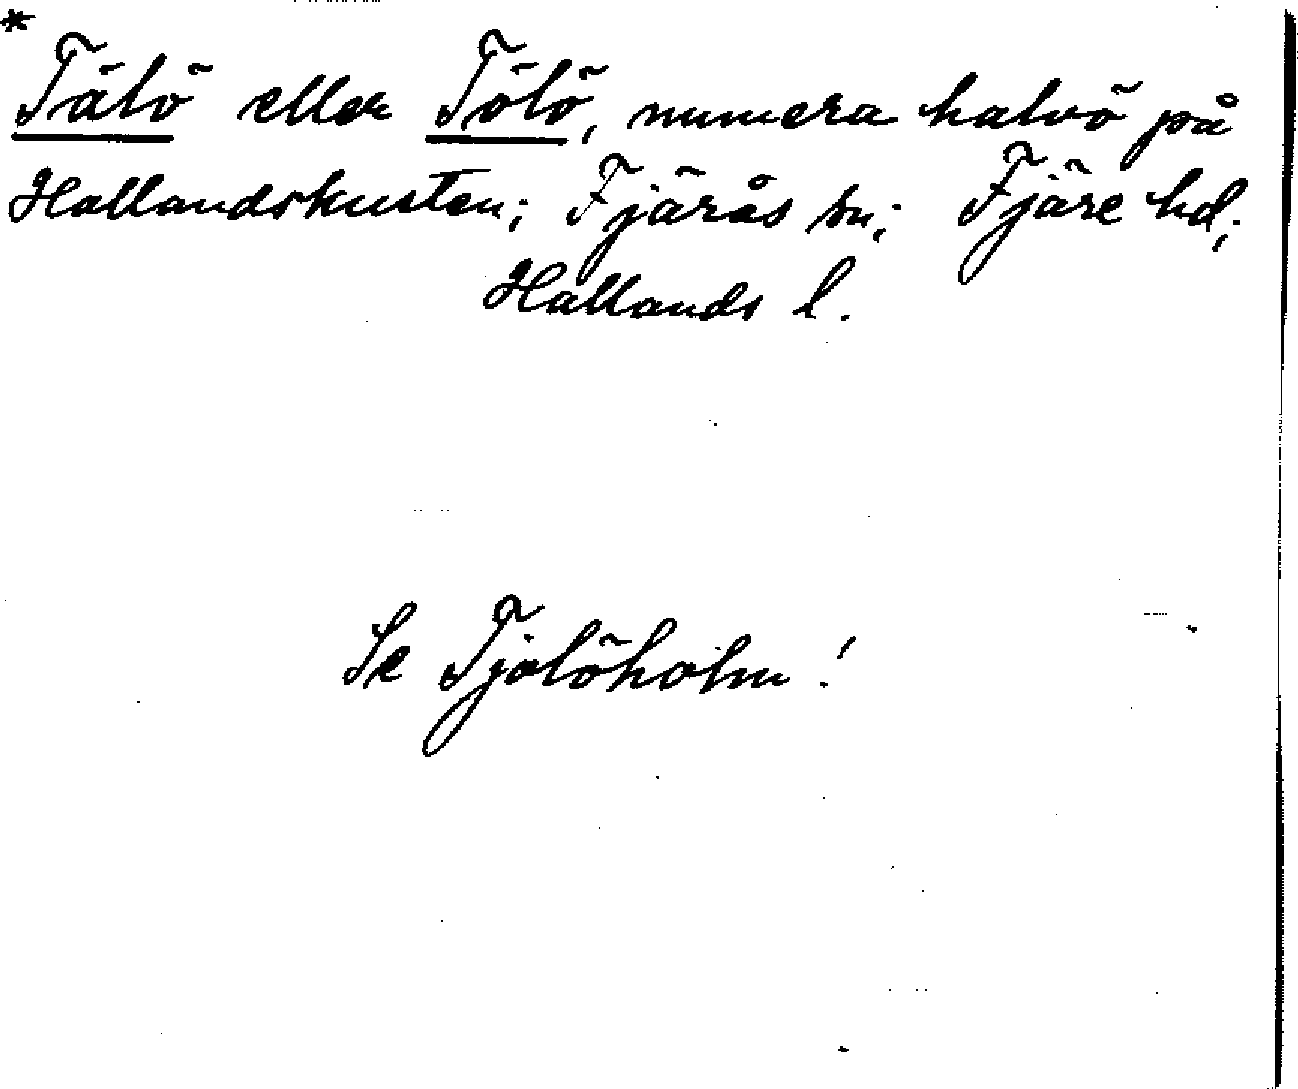 * Tälö eller Tölö, numera halvö på
Hallandskusten; Fjärås sn.; Fjäre hd;
Hallands l.
Se Tjolöholm!